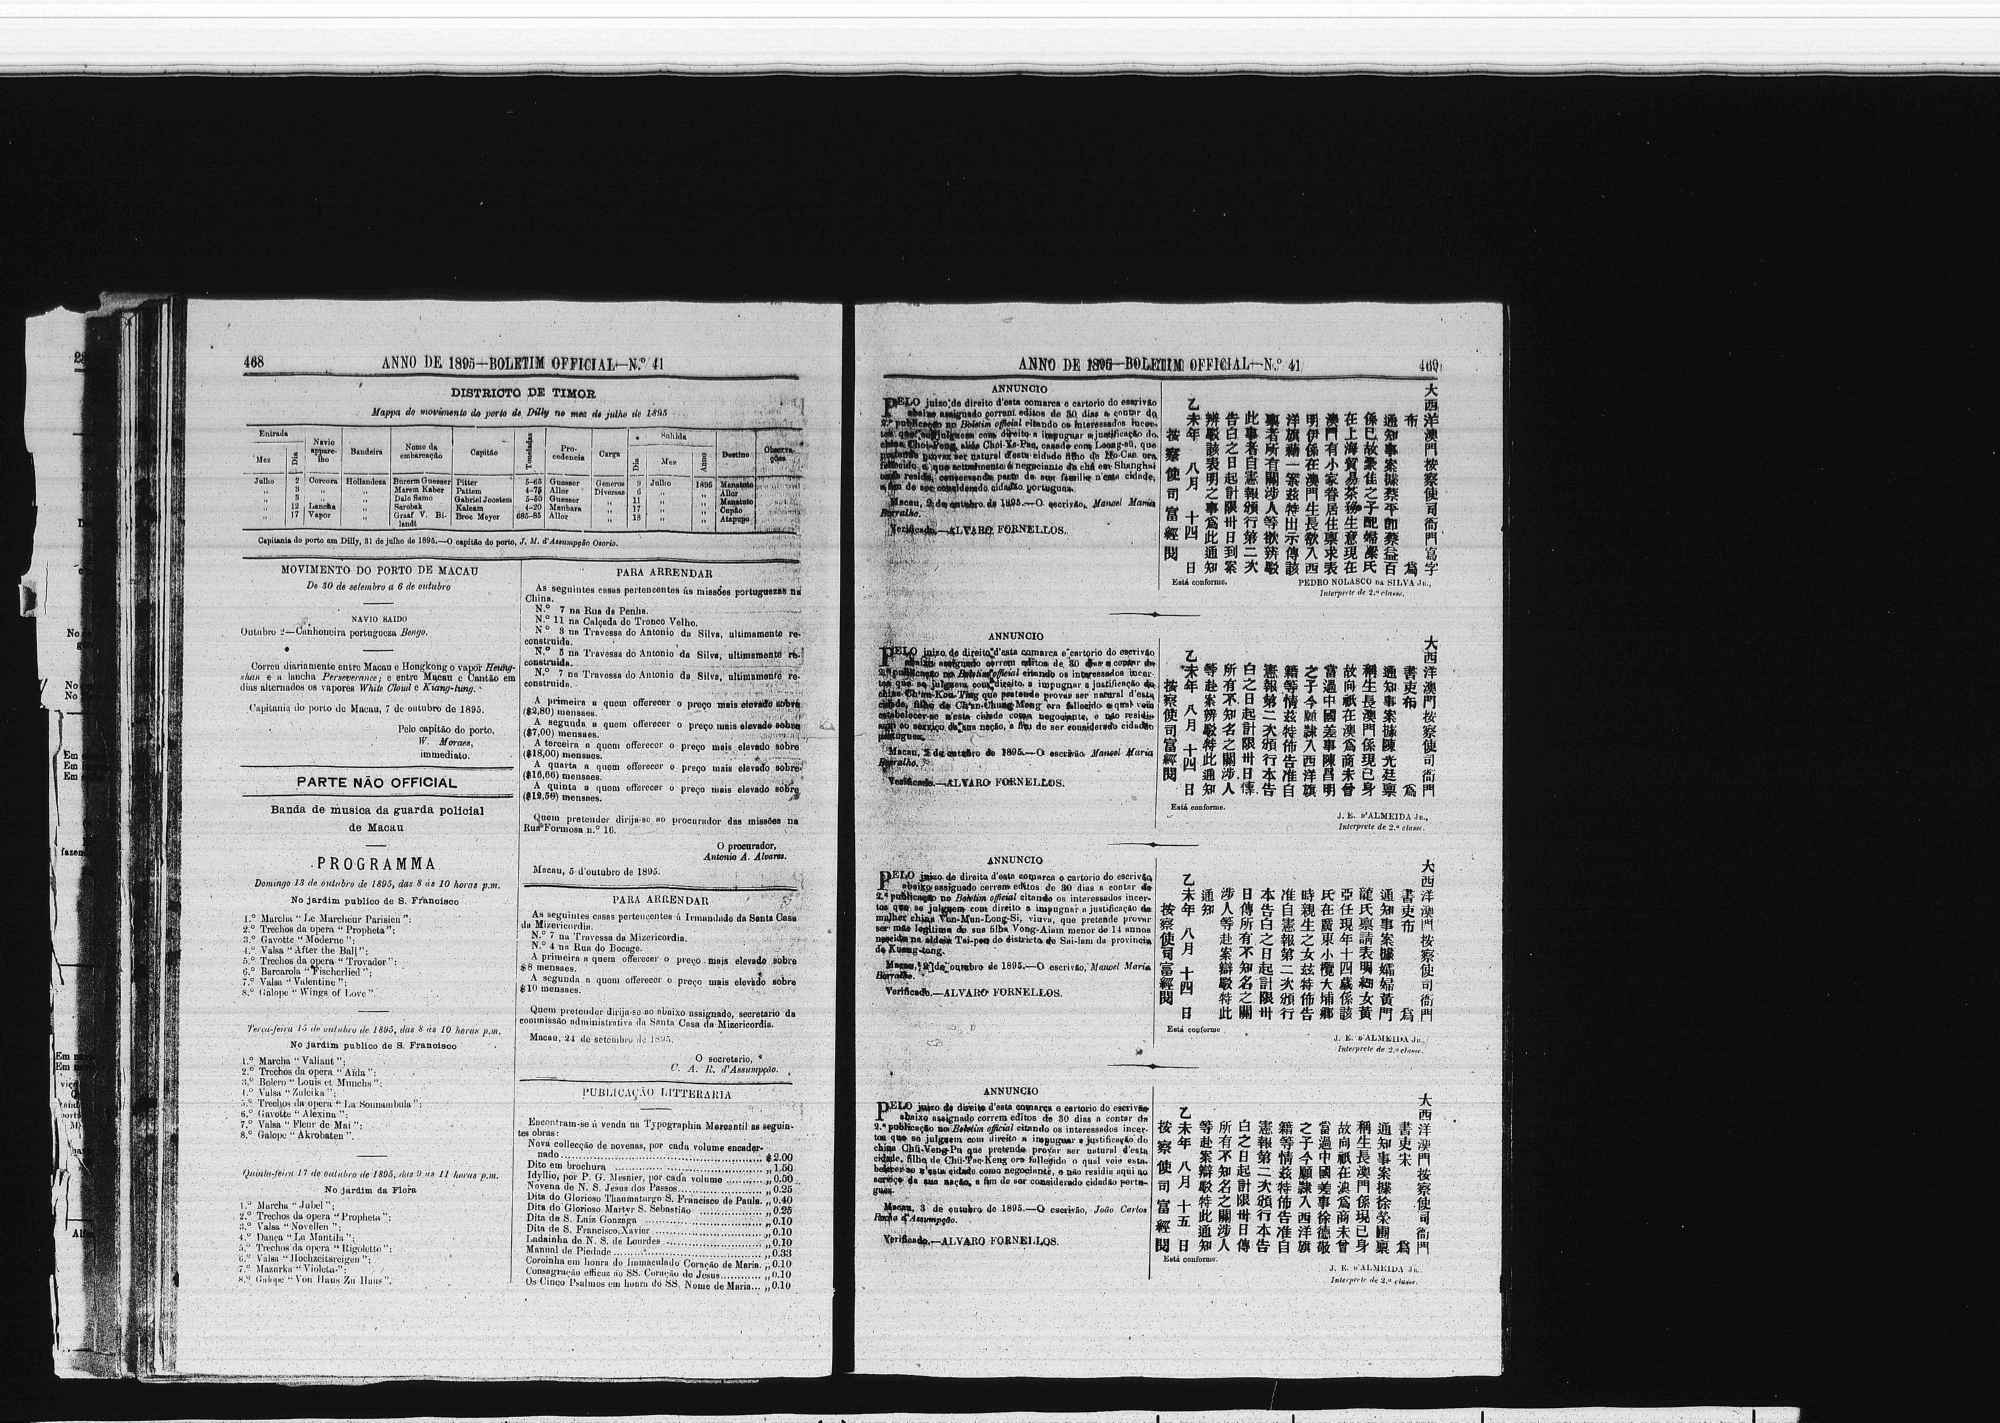 468 ANNO DE 1895—BOLETIM OFFICIAL—N.º 41
DISTRICTO DE TIMOR
Mappa do movimento do porto de Dilly no mez de julho de 1895
Entrada
Sahida
Mez Dia Navio appare-lho Bandeira Nome da embarcação Capitão Toneladas Pro-cedencia Carga Dia Mez Anno Destino Observa-ções
Julho 2 Corcora Hollandeza Burerm Guesser Pitter 5-65 Guesser Generos 9 Julho 1895 Manatuto
„ 3 „ „ Marem Kaber Pattem 4-75 Allor Diversas 6 „ „ Allor
„ 3 „ „ Dale Samo Gabriel Jocotem 5-50 Guesser „ 11 „ „ Manatuto
„ 12 Lancha „ Sarobak Kaleam 4-20 Manbara „ 17 „ „ Cupão
„ 17 Vapor „ Graaf V. Bi-landt Broc Meyer 685-85 Allor „ 18 „ „ Atapupo
Capitania do porto em Dilly, 31 de julho de 1895.—O capitão do porto, J. M. d'Assumpção Osorio.
MOVIMENTO DO PORTO DE MACAU
De 30 de setembro a 6 de outubro
NAVIO SAIDO
Outubro 2—Canhoneira portugueza Bengo.
Correu diariamente entre Macau e Hongkong o vapor Heung-
shan e a lancha Perseverance; e entre Macau e Cantão em
dias alternados os vapores White Cloud e Kiang-tung.
Capitania do porto de Macau, 7 de outubro de 1895.
Pelo capitão do porto,
W. Moraes,
immediato.
PARTE NÃO OFFICIAL
Banda de musica da guarda policial
de Macau
PROGRAMMA
Domingo 13 de outubro de 1895, das 8 ás 10 horas p.m.
No jardim publico de S. Francisco
1.º Marcha "Le Marcheur Parisien";
2.º Trechos da opera "Propheta";
3.º Gavotte "Moderne";
4.º Valsa "After the Ball";
5.º Trechos da opera "Trovador";
6.º Barcarola "Fischerlied";
7.º Valsa "Valentine";
8.º Galope "Wings of Love"
Terça-feira 15 de outubro de 1895, das 8 ás 10 horas p.m.
No jardim publico de S. Francisco
1.º Marcha "Valiant";
2.º Trechos da opera "Aïda";
3.º Bolero "Louis et Munchs";
4.º Valsa "Zuleika";
5.º Trechos da opera "La Somnambula";
6.º Gavotte "Alexina";
7.º Valsa "Fleur de Mai";
8.º Galope "Akrobaten".
Quinta-feira 17 de outubro de 1895, das 9 ás 11 horas p.m.
No jardim da Flora
1.º Marcha "Jubel";
2.º Trechos da opera "Propheta";
3.º Valsa "Novellen";
4.º Dança "La Mantila";
5.º Trechos da opera "Rigoletto";
6.º Valsa "Hochzeitsreigen";
7.º Mazurka "Violeta";
8.º Galope "Von Haus Zu Haus".
PARA ARRENDAR
As seguintes casas pertencentes ás missões portuguezas na
China.
N.º 7 na Rua da Penha.
N.º 11 na Calçada do Tronco Velho.
N.º 3 na Travessa do Antonio da Silva, ultimamente re-
construida.
N.º 5 na Travessa do Antonio da Silva, ultimamente re-
construida.
N.º 7 na Travessa do Antonio da Silva, ultimamente re-
construida.
A primeira a quem offerecer o preço mais elevado sobre
($2,80) mensaes.
A segunda a quem offerecer o preço mais elevado sobre
($7,00) mensaes.
A terceira a quem offerecer o preço mais elevado sobre
($18,00) mensaes.
A quarta a quem offerecer o preço mais elevado sobre
($16,66) mensaes.
A quinta a quem offerecer o preço mais elevado sobre
($12,50) mensaes.
Quem pretender dirija-se ao procurador das missões na
Rua Formosa n.º 16.
O procurador,
Antonio A. Alvares.
Macau, 5 d'outubro de 1895.
PARA ARRENDAR
As seguintes casas pertencentes á Irmandade da Santa Casa
da Misericordia.
N.º 7 na Travessa da Misericordia.
N.º 4 na Rua do Bocage.
A primeira a quem offerecer o preço mais elevado sobre
$8 mensaes.
A segunda a quem offerecer o preço mais elevado sobre
$10 mensaes.
Quem pretender dirija-se ao abaixo assignado, secretario da
commissão administrativa da Santa Casa da Misericordia.
Macau, 24 de setembro de 1895.
O secretario,
C. A. R. d'Assumpção.
PUBLICAÇÃO LITTERARIA
Encontram-se á venda na Typographia Mercantil as seguin-
tes obras:
Nova collecção de novenas, por cada volume encader-
nado $2.00
Dito em brochura „1.50
Idyllio, por P. G. Mesnier, por cada volume „0.50
Novena de N. S. Jesus dos Passos „0.25
Dita do Glorioso Thaumaturgo S. Francisco de Paula. „0.40
Dita do Glorioso Martyr S. Sebastião „0.25
Dita de S. Luiz Gonzaga „0.10
Dita de S. Francisco Xavier „0.10
Ladainha de N. S. de Lourdes „0.10
Manual de Piedade „0.33
Coroinha em honra do Immaculado Coração de Maria. „0.10
Consagração efficaz ao SS. Coração de Jesus „0.10
Os Cinco Psalmos em honra do SS. Nome de Maria „0.10
ANNO DE 1895—BOLETIM OFFICIAL—N.º 41 469
ANNUNCIO
PELO juizo de direito d'esta comarca e cartorio do escrivão
abaixo assignado correm editos de 30 dias a contar da
2.ª publicação no Boletim official citando os interessados incer-
tos que se julguem com direito a impugnar a justificação do
china Choi-Peng, aliás Choi-Ye-Pac, casado com Leong-sü, que
pretende provar ser natural d'esta cidade filho de Ho-Cao ora
fallecido, e que actualmente é negociante de chá em Shanghai
onde reside, conservando parte de sua familia n'esta cidade,
a fim de ser considerado cidadão portuguez.
Macau, 2 de outubro de 1895.—O escrivão, Manoel Maria
Borralho.
Verificado.—ALVARO FORNELLOS.
大西洋澳門按察使司衙門寫字
布 爲
通知事案據蔡平卽蔡益百
係已故豪佳之子配婦梁氏
在上海貿易茶務生意現在
澳門有小家眷居住禀求表
明伊係在澳門生長欲入西
洋旗籍一案茲特出示傳該
禀者所有關涉人等欲辨駁
此事者自憲報頒行第二次
告白之日起計限卅日到案
辨駁該表明之事爲此通知
乙未年 八月 十四 日
按察使司富經閱
Está conforme.
PEDRO NOLASCO DA SILVA JR.,
Interprete de 2.ª classe.
ANNUNCIO
PELO juizo de direito d'esta comarca e cartorio do escrivão
abaixo assignado correm editos de 30 dias a contar da
2.ª publicação no Boletim official citando os interessados incer-
tos que se julguem com direito a impugnar a justificação do
china Ch'an-Kou-Ting que pretende provar ser natural d'esta
cidade, filho de Ch'an-Chang-Meng ora fallecido o qual veio
estabelecer-se n'esta cidade como negociante, e não residiu
aqui ao serviço da sua nação, a fim de ser considerado cidadão
portuguez.
Macau, 2 de outubro de 1895.—O escrivão, Manoel Maria
Borralho.
Verificado.—ALVARO FORNELLOS.
大西洋澳門按察使司衙門
書吏布 爲
通知事案據陳光廷禀
稱生長澳門係現已身
故向祇在澳爲商未曾
當過中國差事陳昌明
之子今願隸入西洋旗
籍等情茲特佈告准自
憲報第二次頒行本告
白之日起計限卅日傳
所有不知名之關涉人
等赴案辨駁特此通知
乙未年 八月 十四 日
按察使司富經閱
Está conforme.
J. E. D'ALMEIDA JR.,
Interprete de 2.ª classe.
ANNUNCIO
PELO juizo de direito d'esta comarca e cartorio do escrivão
abaixo assignado correm editos de 30 dias a contar da
2.ª publicação no Boletim official citando os interessados incer-
tos que se julguem com direito a impugnar a justificação da
mulher china Vun-Mun-Long-Si, viuva, que pretende provar
ser mãe legitima de sua filha Vong-Aiam menor de 14 annos
nascida na aldeia Tai-pou do districto de Sai-lam da provincia
de Kuang-tong.
Macau, 2 de outubro de 1895.—O escrivão, Manuel Maria
Borralho.
Verificado.—ALVARO FORNELLOS.
大西洋澳門按察使司衙門
書吏布 爲
通知事案據孀婦黃門
龍氏禀請表明細女黃
亞任現年十四歲係該
氏在廣東小欖大埔鄉
時親生之女茲特佈告
准自憲報第二次頒行
本告白之日起計限卅
日傳所有不知名之關
涉人等赴案辯駁特此
通知
乙未年 八月 十四 日
按察使司富經閱
Está conforme
J. E. D'ALMEIDA JR.,
Interprete de 2.ª classe.
ANNUNCIO
PELO juizo de direito d'esta comarca e cartorio do escrivão
abaixo assignado correm editos de 30 dias a contar da
2.ª publicação no Boletim official citando os interessados incer-
tos que se julguem com direito a impugnar a justificação do
china Chü-Veng-Pu que pretende provar ser natural d'esta
cidade, filho de Chü-Tac-Keng ora fallecido o qual veio esta-
belecer-se n'esta cidade como negociante, e não residiu aqui ao
serviço da sua nação, a fim de ser considerado cidadão portu-
guez.
Macau, 3 de outubro de 1895.—O escrivão, João Carlos
Rocha d'Assumpção.
Verificado.—ALVARO FORNELLOS.
大西洋澳門按察使司衙門
書吏宋 爲
通知事案據徐榮圃禀
稱生長澳門係現已身
故向祇在澳爲商未曾
當過中國差事徐德敬
之子今願隸入西洋旗
籍等情茲特佈告准自
憲報第二次頒行本告
白之日起計限卅日傳
所有不知名之關涉人
等赴案辯駁特此通知
乙未年 八月 十五 日
按察使司富經閱
Está conforme.
J. E. D'ALMEIDA JR.
Interprete de 2.ª classe.